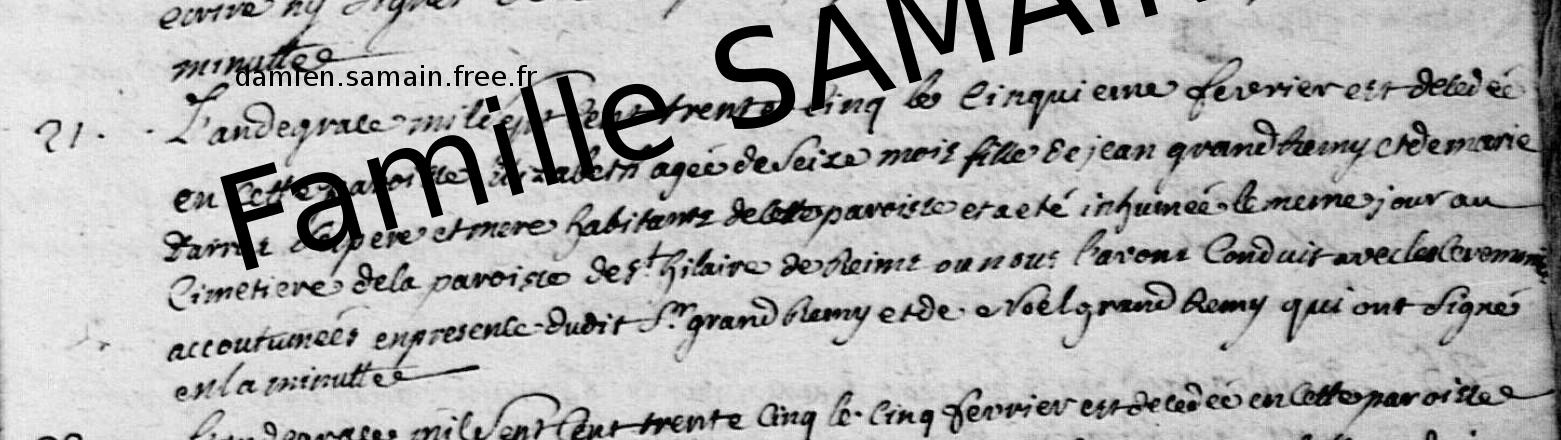 ecrire ny signer
minuttee
damien.samain.free.fr
Famille SAMAIN
21. L'andegrace mil sept Cent trente Cinq le Cinquieme fevrier est decedée
en Cette paroisse Elizabeth agée de Seize mois fille de jean grand Remy et de marie
ses pere et mere habitants de Cette paroisse et a eté inhumée le meme jour au
Cimetiere de la paroisse de st hilaire de Reims ou nous l'avons Conduit avec les Ceremonies
accoutumées en presence dudit Sr grand Remy et de Noel grand Remy qui ont Signé
en la minuttee
L'andegrace mil Sept Cent trente Cinq le Cinq fevrier est decedée en Cette paroisse